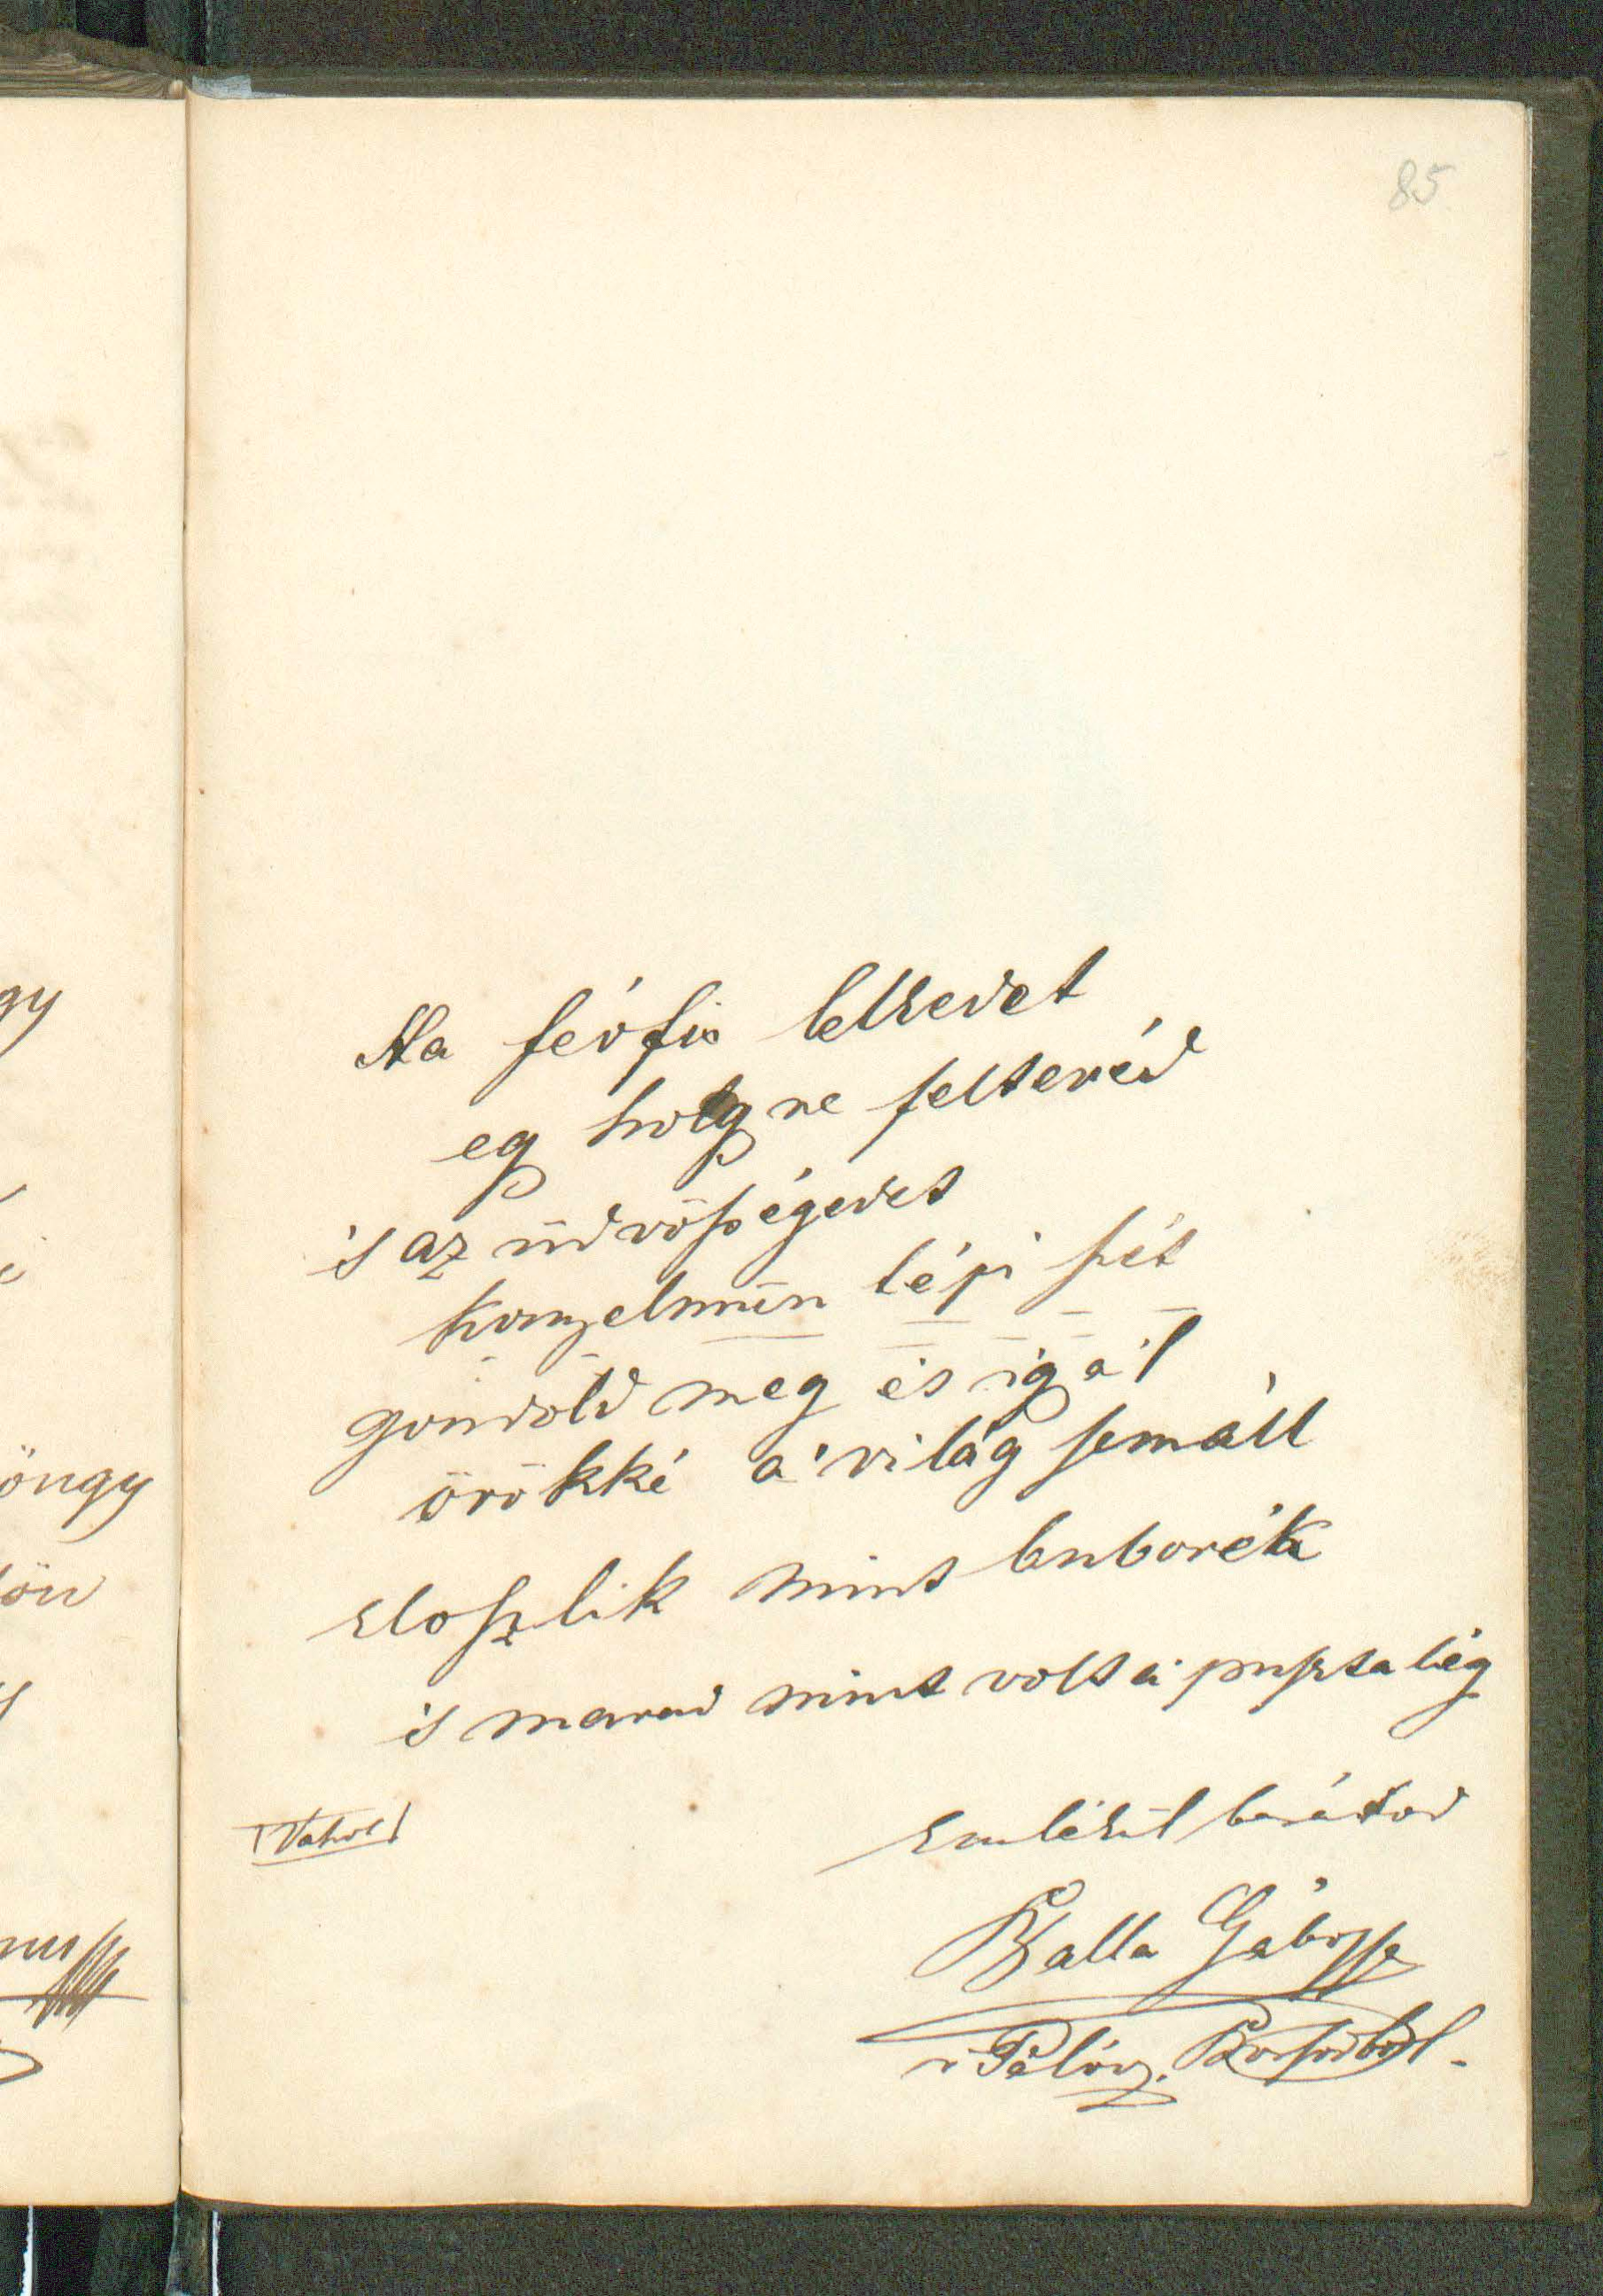 85
Ha férfiu lelkedet
eg holgyre feltevéd
is az üdvösségedet
könyelmün tépi szét
gondold meg és igaź
örökké a' világ sem áll
eloszlik mint buborék
is marad mint volt a' puszta lég
Vahot
Emlékül barátod
Balla Gábor
Borsodból.
gy
öngy